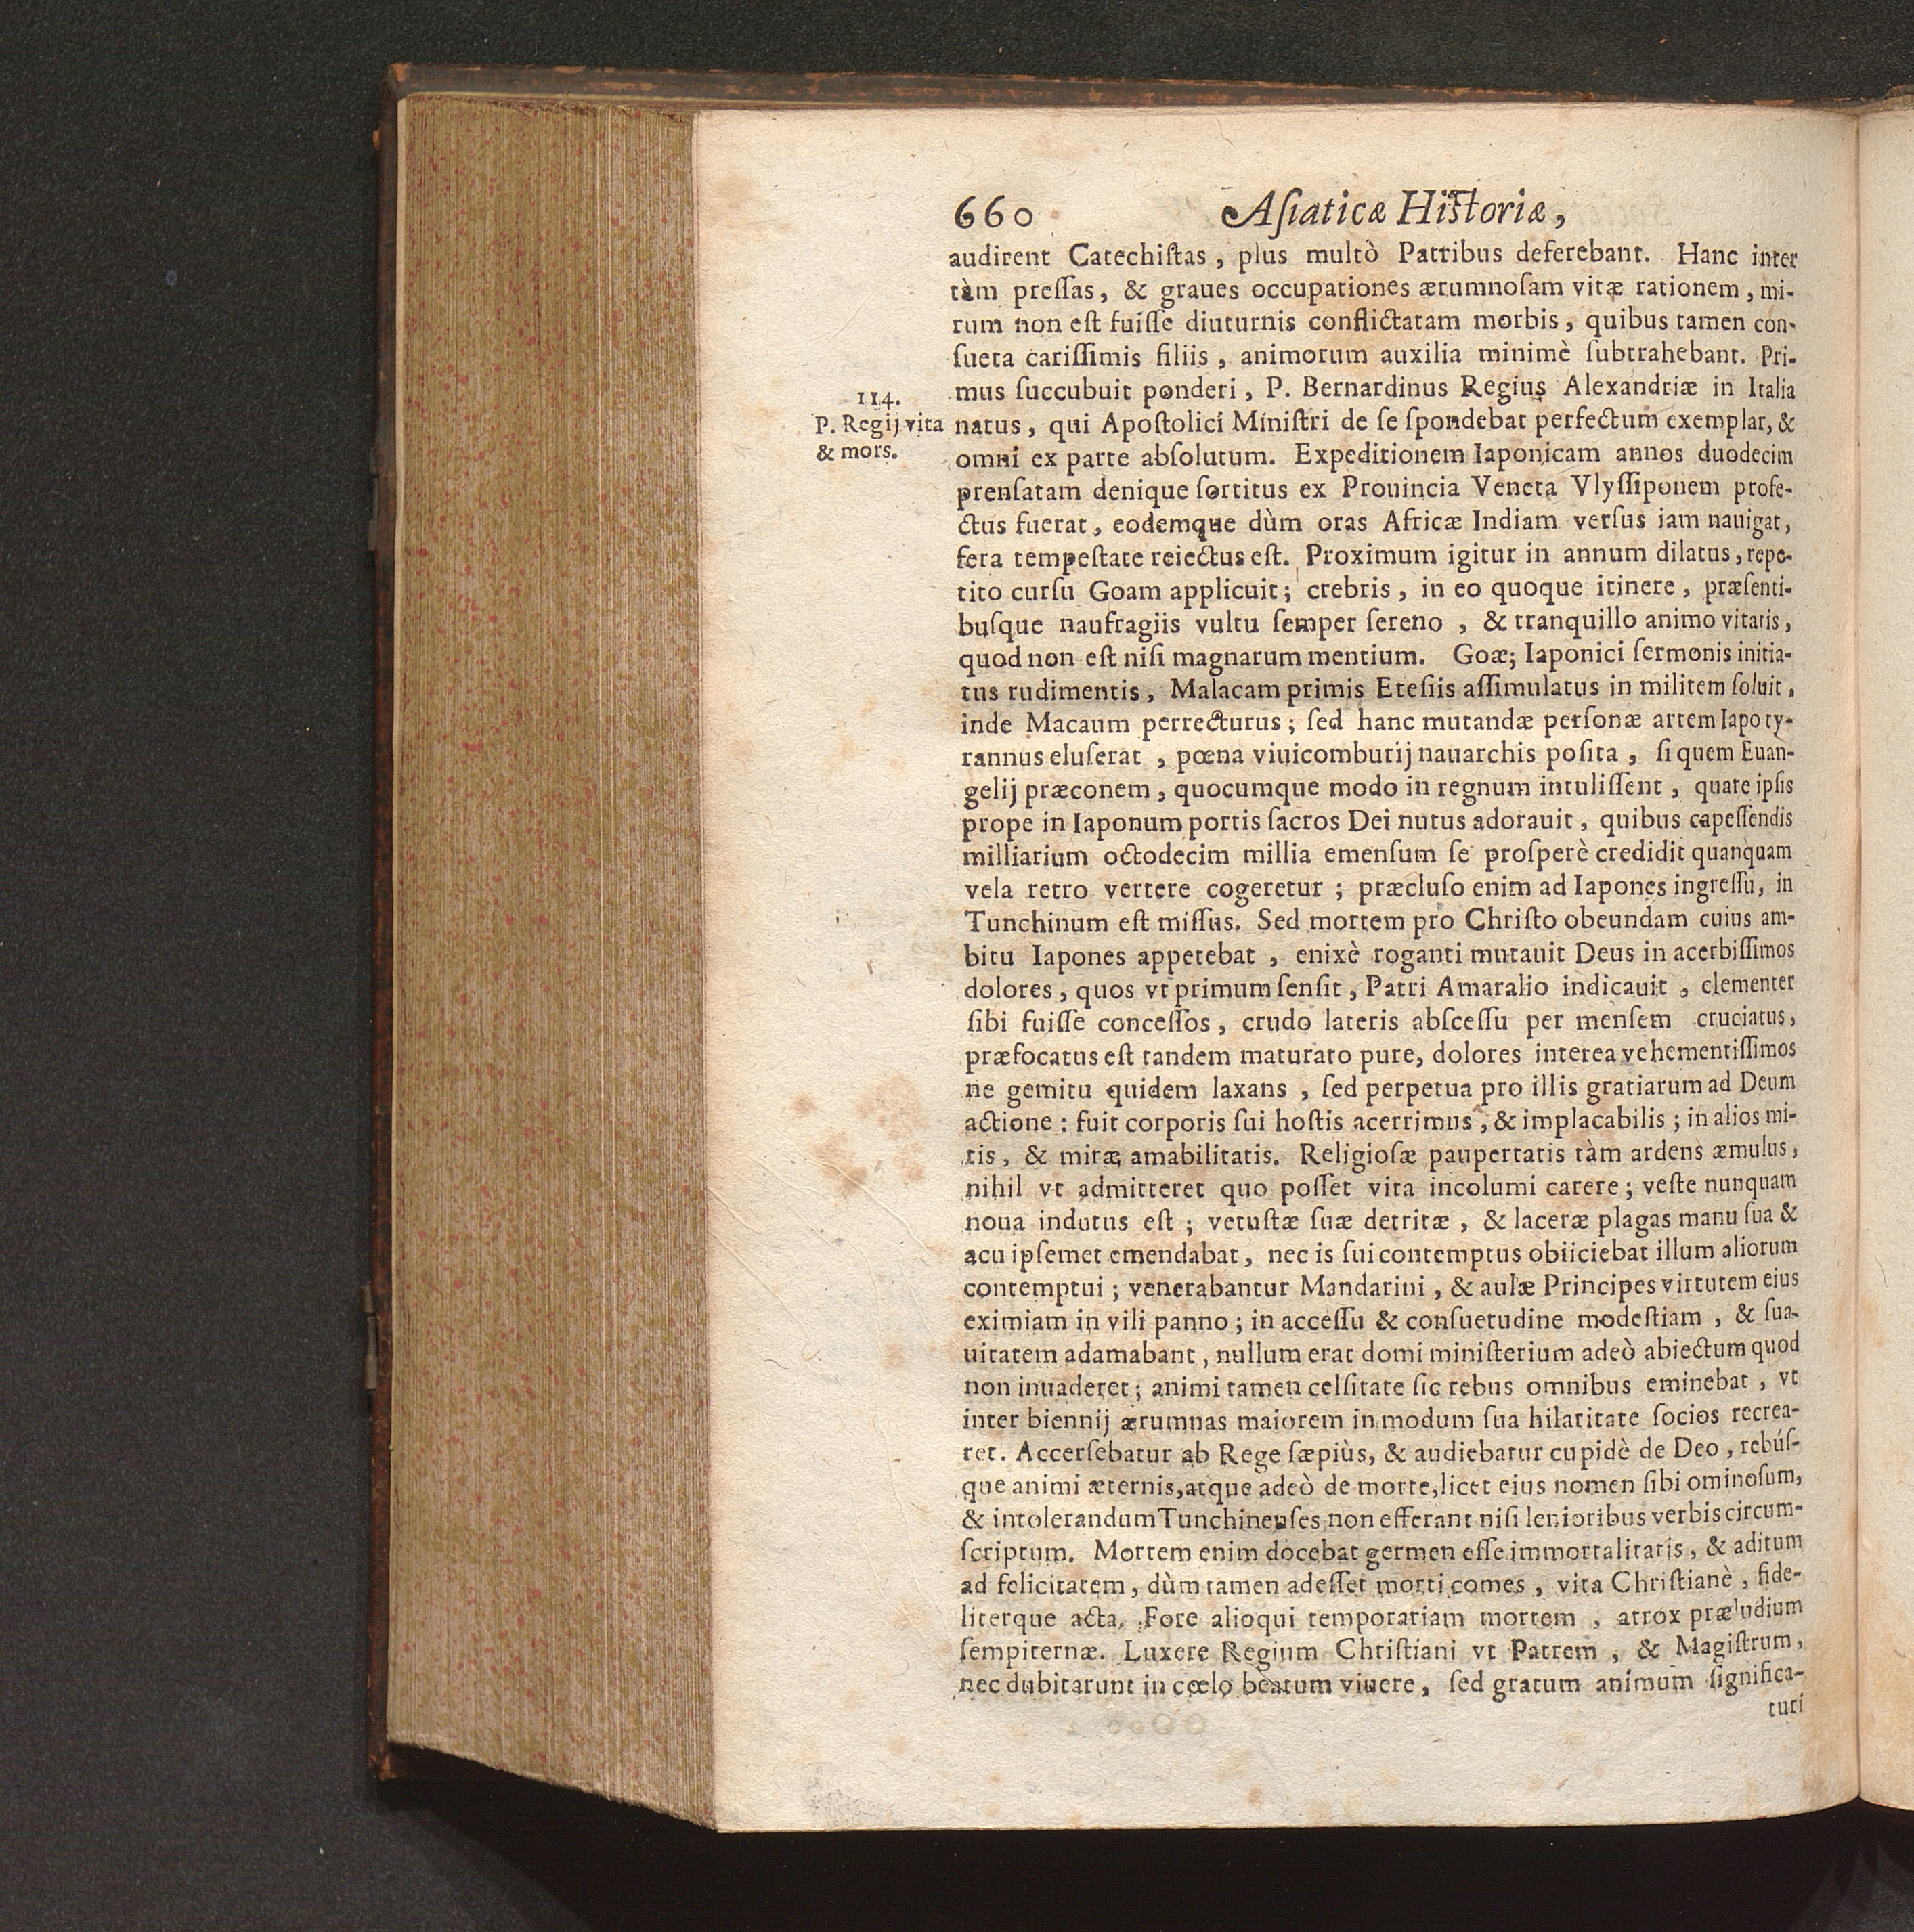 660 Aſiaticæ Hiſtoriæ,
audirent Catechiſtas, plus multò Patribus deferebant. Hanc inter
tàm preſſas, & graues occupationes ærumnoſam vitæ rationem, mi-
rum non eſt fuiſſe diuturnis conflictatam morbis, quibus tamen con-
ſueta cariſſimis filiis, animorum auxilia minimè ſubtrahebant. Pri-
mus ſuccubuit ponderi, P. Bernardinus Regius Alexandriæ in Italia
114.
P. Regij vita
& mors.
natus, qui Apoſtolici Miniſtri de ſe ſpondebat perfectum exemplar, &
omni ex parte abſolutum. Expeditionem Iaponicam annos duodecim
prenſatam denique ſortitus ex Prouincia Veneta Vlyſſiponem profe-
ctus fuerat, eodemque dùm oras Africæ Indiam verſus iam nauigat,
fera tempeſtate reiectus eſt. Proximum igitur in annum dilatus, repe-
tito curſu Goam applicuit; crebris, in eo quoque itinere, præſenti-
buſque naufragiis vultu ſemper ſereno, & tranquillo animo vitatis,
quod non eſt niſi magnarum mentium. Goæ; Iaponici ſermonis initia-
tus rudimentis, Malacam primis Eteſiis aſſimulatus in militem ſoluit,
inde Macaum perrecturus; ſed hanc mutandæ perſonæ artem Iapo ty-
rannus eluſerat, pœna viuicomburij nauarchis poſita, ſi quem Euan-
gelij præconem, quocumque modo in regnum intuliſſent, quare ipſis
prope in Iaponum portis ſacros Dei nutus adorauit, quibus capeſſendis
milliarium octodecim millia emenſum ſe proſperè credidit quanquam
vela retro vertere cogeretur; præcluſo enim ad Iapones ingreſſu, in
Tunchinum eſt miſſus. Sed mortem pro Chriſto obeundam cuius am-
bitu Iapones appetebat, enixè roganti mutauit Deus in acerbiſſimos
dolores, quos vt primum ſenſit, Patri Amaralio indicauit, clementer
ſibi fuiſſe conceſſos, crudo lateris abſceſſu per menſem cruciatus,
præfocatus eſt tandem maturato pure, dolores interea vehementiſſimos
ne gemitu quidem laxans, ſed perpetua pro illis gratiarum ad Deum
actione: fuit corporis ſui hoſtis acerrimus, & implacabilis; in alios mi-
tis, & miræ amabilitatis. Religioſæ paupertatis tàm ardens æmulus,
nihil vt admitteret quo poſſet vita incolumi carere; veſte nunquam
noua indutus eſt; vetuſtæ ſuæ detritæ, & laceræ plagas manu ſua &
acu ipſemet emendabat, nec is ſui contemptus obiiciebat illum aliorum
contemptui; venerabantur Mandarini, & aulæ Principes virtutem eius
eximiam in vili panno; in acceſſu & conſuetudine modeſtiam, & ſua-
uitatem adamabant, nullum erat domi miniſterium adeò abiectum quod
non inuaderet; animi tamen celſitate ſic rebus omnibus eminebat, vt
inter biennij ærumnas maiorem in modum ſua hilaritate ſocios recrea-
ret. Accerſebatur ab Rege ſæpiùs, & audiebatur cupidè de Deo, rebúſ-
que animi æternis,atque adeò de morte,licet eius nomen ſibi ominoſum,
& intolerandum Tunchinenſes non efferant niſi lenioribus verbis circum-
ſcriptum. Mortem enim docebat germen eſſe immortalitatis, & aditum
ad felicitatem, dùm tamen adeſſet morti comes, vita Chriſtianè, fide-
literque acta. Fore alioqui temporariam mortem, atrox præludium
ſempiternæ. Luxere Regium Chriſtiani vt Patrem, & Magiſtrum,
nec dubitarunt in cœlo beatum viuere, ſed gratum animum ſignifica-
turi